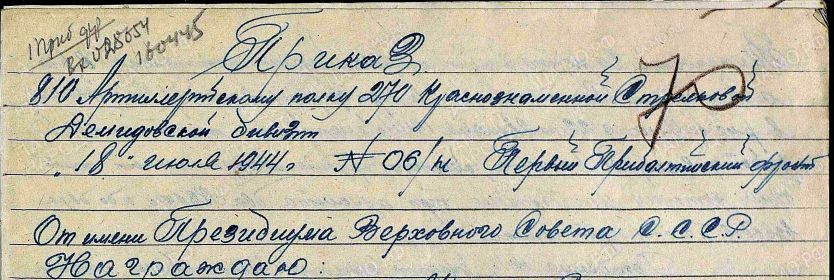 1 Приб фр
ВК 028054
160445
Приказ
810 Артилерийскому полку 270 Краснознаменной Стрелковой
Демидовской дивизии
"18" июля 1944г №06/н Первый Прибалтийский фронт
От имени Президиума Верховного Совета С.С.С.Р.
Награждаю: